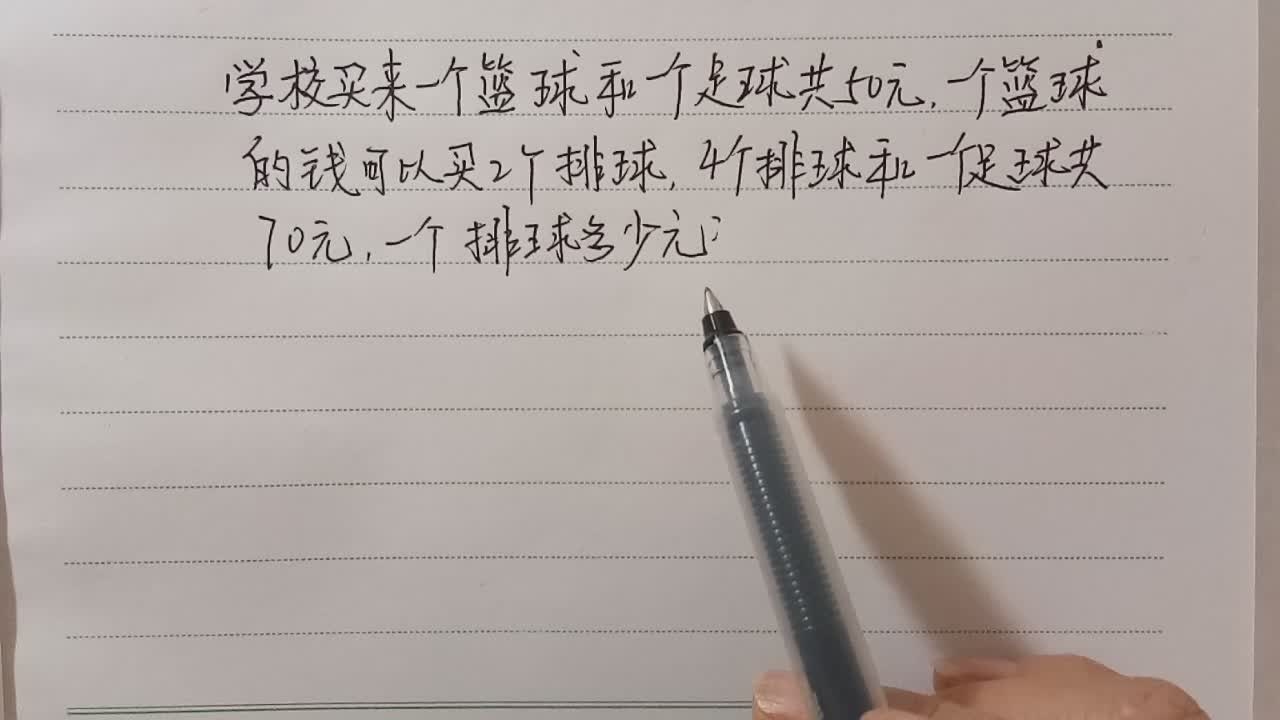 学校买来一个篮球和一个足球共50元,一个篮球
的钱可以买2个排球,4个排球和一个足球共
70元,一个排球多少元?